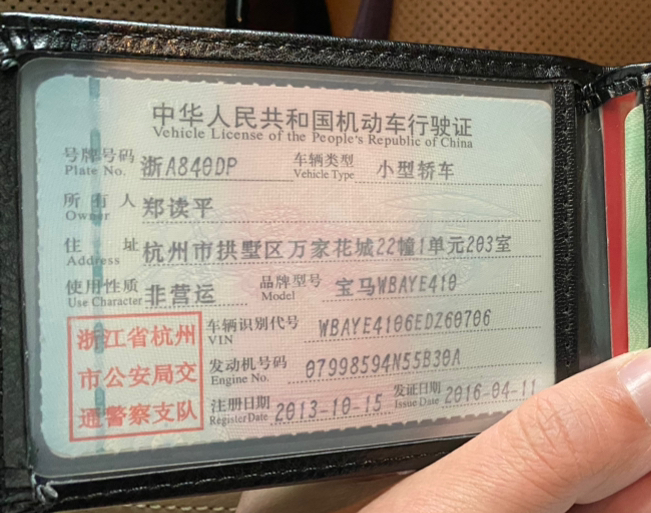 中华人民共和国机动车行驶证
Vehicle License of the People's Republic of China
号牌号码 浙A840DP 车辆类型 小型轿车
Plate No. Vehicle Type
所有人 郑读平
Owner
住址 杭州市拱墅区万家花城22幢1单元203室
Address
使用性质 非营运 品牌型号 宝马WBAYE410
Use Character Model
浙江省杭州
市公安局交
通警察支队
车辆识别代号 WBAYE4106ED260706
VIN
发动机号码 07998594N55B30A
Engine No.
注册日期 2013-10-15 发证日期 2016-04-11
Register Date Issue Date